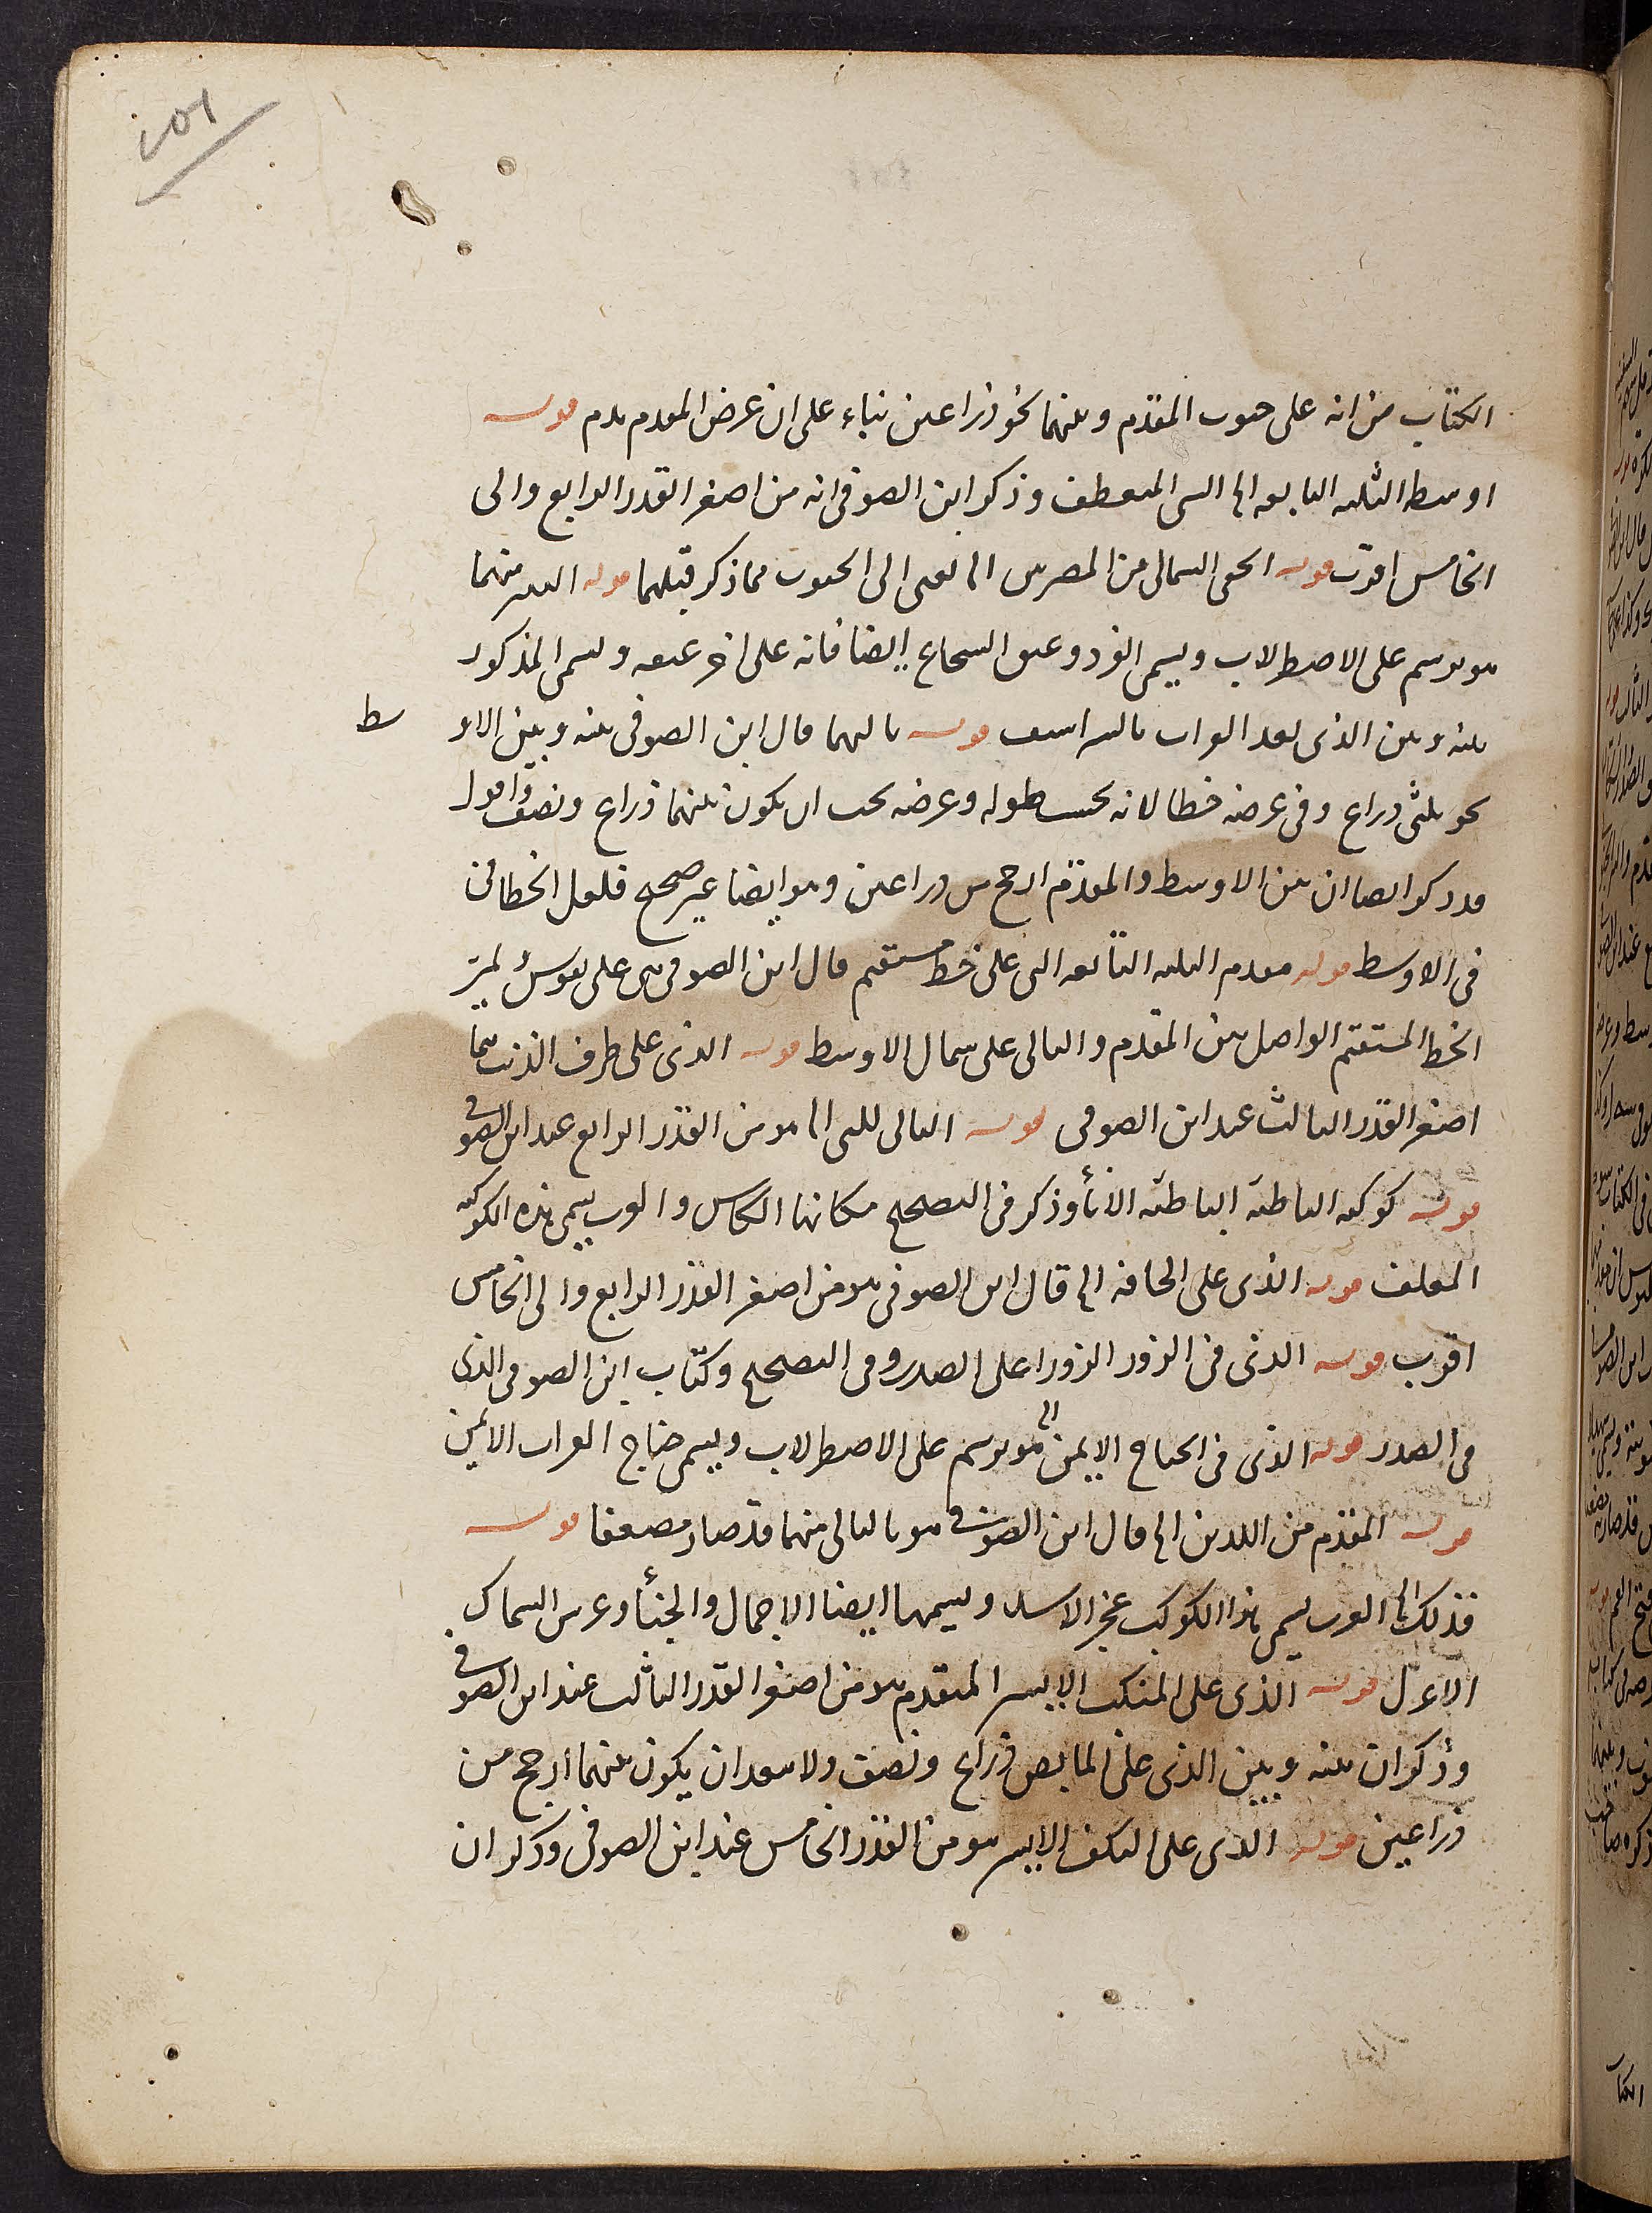 الكتاب من انه على جنوب المقدم وبينهما نحو ذراعين بناء على ان عرض المقدم قوله
اوسط الثلثة التابعه الى التى المنعطف وذكر ابن الصوفى انه من اصغر القدر الرابع والى
الخامس اقرب قوله الشمالى من الى الى الجنوب مما ذكر قبلهما قوله منهما
هو يرسم على الاصطرلاب ويسمى الفرد وعنق الشجاع ايضا فانه على اخر عنقه ويسمى المذكور
بينه وبين الذى بعد قوله تاليهما قال ابن الصوفى بينه وبين الاوسط
نحو ثلثى ذراع وفى عرضه خطا لانه بحسب طوله وعرضه يجب ان يكون بينهما ذراع ونصف واقول
قد ذكر ايضا ان بين الاوسط والمقدم ارجح من ذراعين وهو ايضا غير صحيح فلعل الخطا فى
فى الاوسط قوله مقدم الثلثة التابعه التى على خط مستقيم قال ابن الصوفى هى على تقويس لم يمر
الخط المستقيم الواصل بين المقدم والتالى على شمال الاوسط قوله الذى على طرف الذنب
اصغر القدر الثالث عند ابن الصوفى قوله التالى الى هو من القدر الرابع عند ابن الصوفى
قوله كوكبه الباطئة الباطئة الاناء وذكر فى التصحيح مكانها الكاس والعرب يسمى هذه الكوكبه
المعلف قوله الذى على الحافه الى قال ابن الصوفى هو من اصغر القدر الرابع والى الخامس
اقرب قوله الذى فى الزور الزور اعلى الصدر وفى التصحيح وكتاب ابن الصوفى الذى
فى الصدر قوله الذى فى الجناح الايمن الى هو يرسم على الاصطرلاب ويسمى جناج الغراب الايمن
قوله المقدم من الى قال ابن الصوفى هو بالتالى منهما قد صار مضعفا قوله
فذلك الى العرب يسمى هذا الكوكب عجز الاسد ويسميها ايضا الاحمال والخباء وعرش السماك
الاعزل قوله الذى على المنكب الايسر المتقدم هو من اصغر القدر الثالث عند ابن الصوفى
وذكر ان بينه وبين الذى على المابض ذراع ونصف ولا يبعد ان يكون بينهما ارجح من
ذراعين قوله الذى على الكف الايسر هو من القدر الخامس عند ابن الصوفى وذكر ان